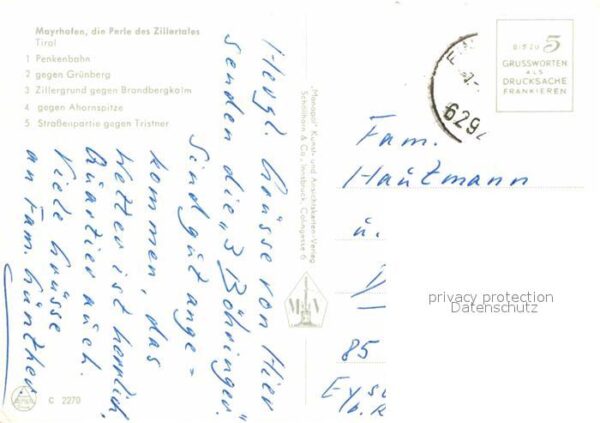 Mayrhofen, die Perle des Zillertales
Tirol
1 Penkenbahn
2 gegen Grünberg
3 Zillergrund gegen Brandbergkolm
4 gegen Ahornspitze
5 Straßenpartie gegen Tristner
Herzl. Grüsse von Hier
senden die „3 Böhringer".
Sind gut ange-
kommen, das
Wetter ist herrlich,
Quartier auch.
Viele Grüsse
an Fam. Günther
„Monopol" Kunst- und Ansichtskarten-Verlag
Schöllhorn & Co., Innsbruck, Colingasse 6
BIS ZU 5
GRUSSWORTEN
ALS
DRUCKSACHE
FRANKIEREN
629
Fam.
Hautmann
u.
85
privacy protection
Datenschutz
C 2270